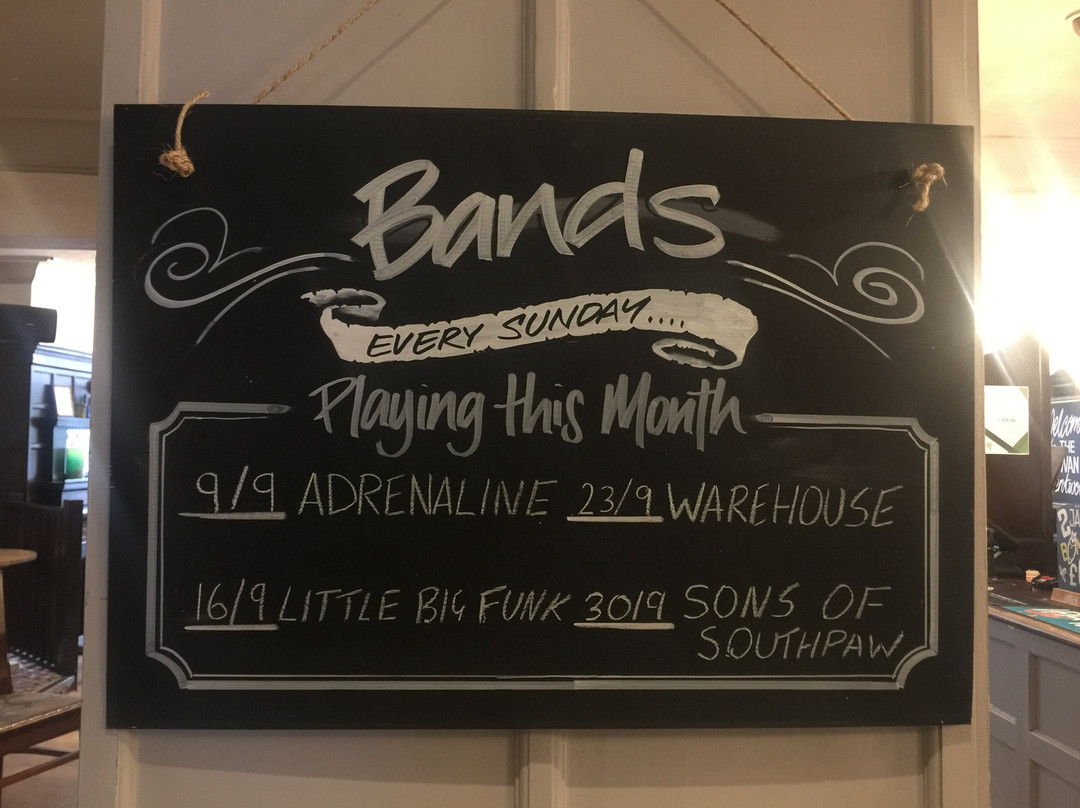 Bands
EVERY SUNDAY....
Playing this Month
9/9 ADRENALINE 23/9 WAREHOUSE
16/9 LITTLE BIG FUNK 30/9 SONS OF
SOUTHPAW
THE